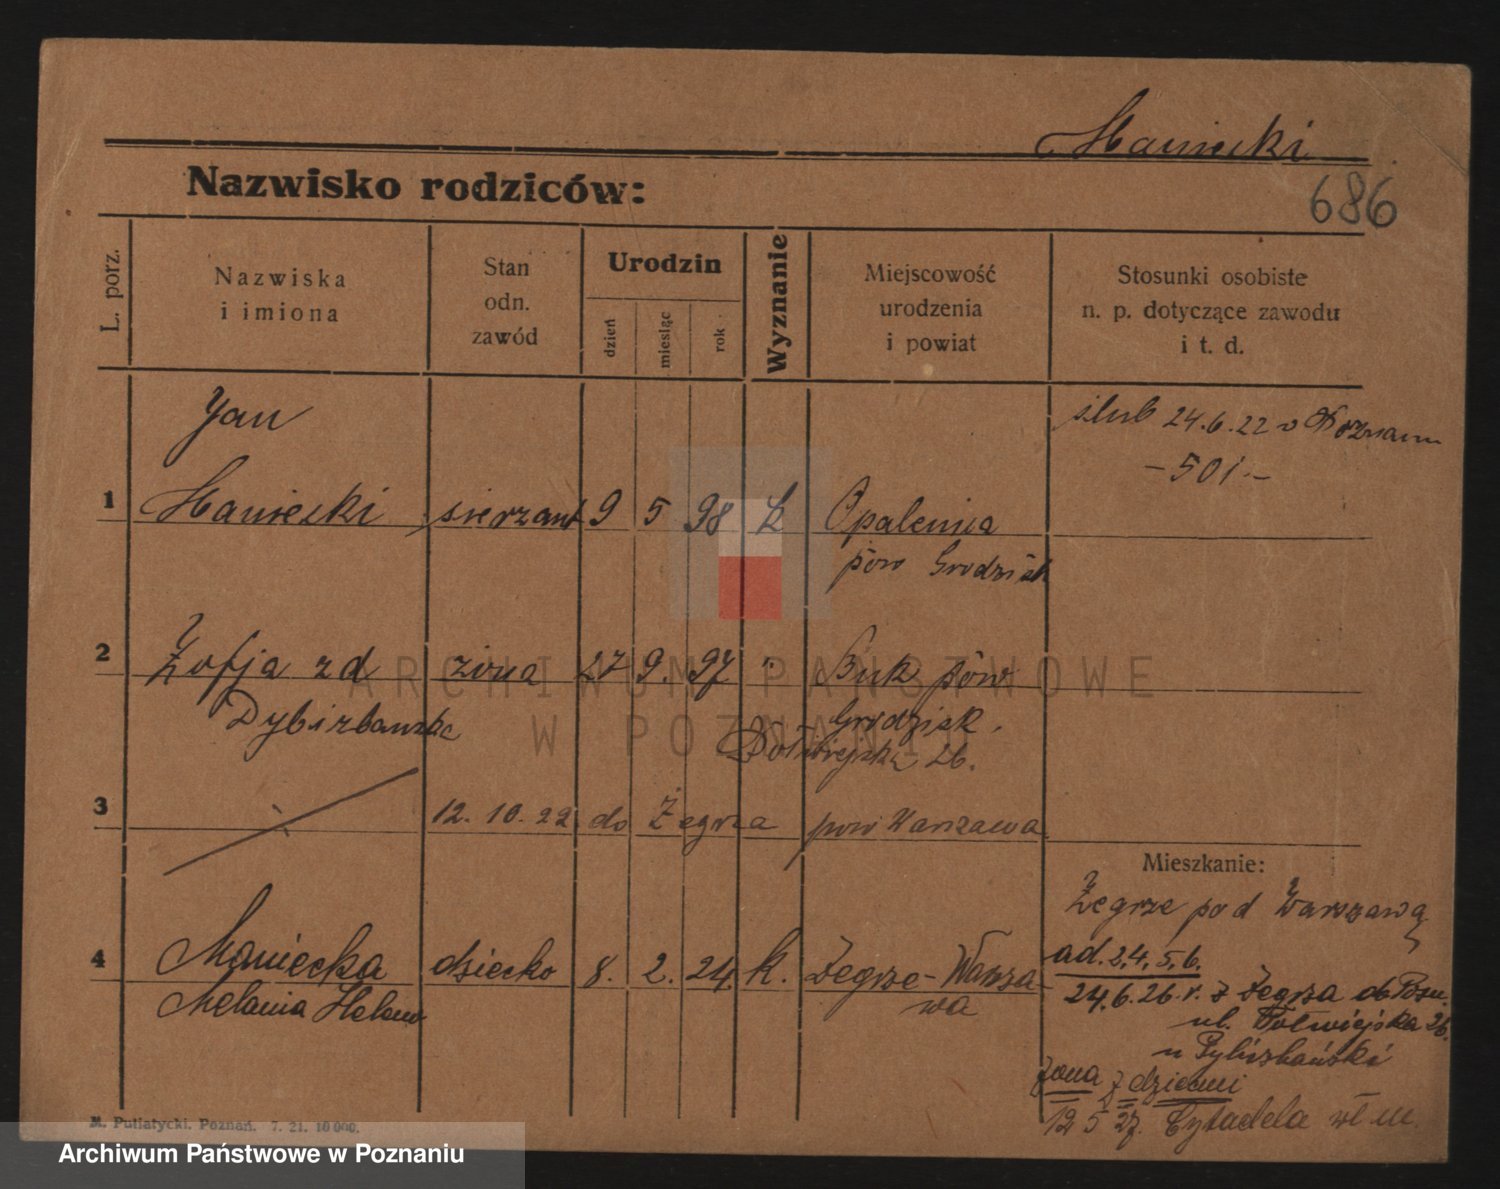 Maniecki
Nazwisko rodziców:
686
L. porz.
Nazwiska
i imiona
Stan
odn.
zawód
Urodzin
dzień
miesiąc
rok
Wyznanie
Miejscowość
urodzenia
i powiat
Stosunki osobiste
n. p. dotyczące zawodu
i t. d.
Jan
ślub 24.6.22 w Poznaniu
-501.-
1 Maniecki sierzant 9 5 98 k Opalenica
pow Grodzisk
2 Zofja zd żona 27 9. 97 ". Buk pow
Grodzisk.
Półwiejska 26.
3 12. 10. 22 do Żegrza pow Warszawa
Mieszkanie:
Zegrze pod Warszawą
4 Maniecka dziecko 8. 2. 24. k. Zegrze-Warsza-
Melania Helena wa
ad. 2, 4, 5, 6.
24.6.26.r. z Zegrza do Pozn.
ul. Półwiejska 26.
u
żona z dziecmi
12 5 27. Cytadela wł m.
M. Putiatycki. Poznań. 7. 21. 10 000.
ARCHIWUM PAŃSTWOWE
W POZNANIU
Archiwum Państwowe w Poznaniu